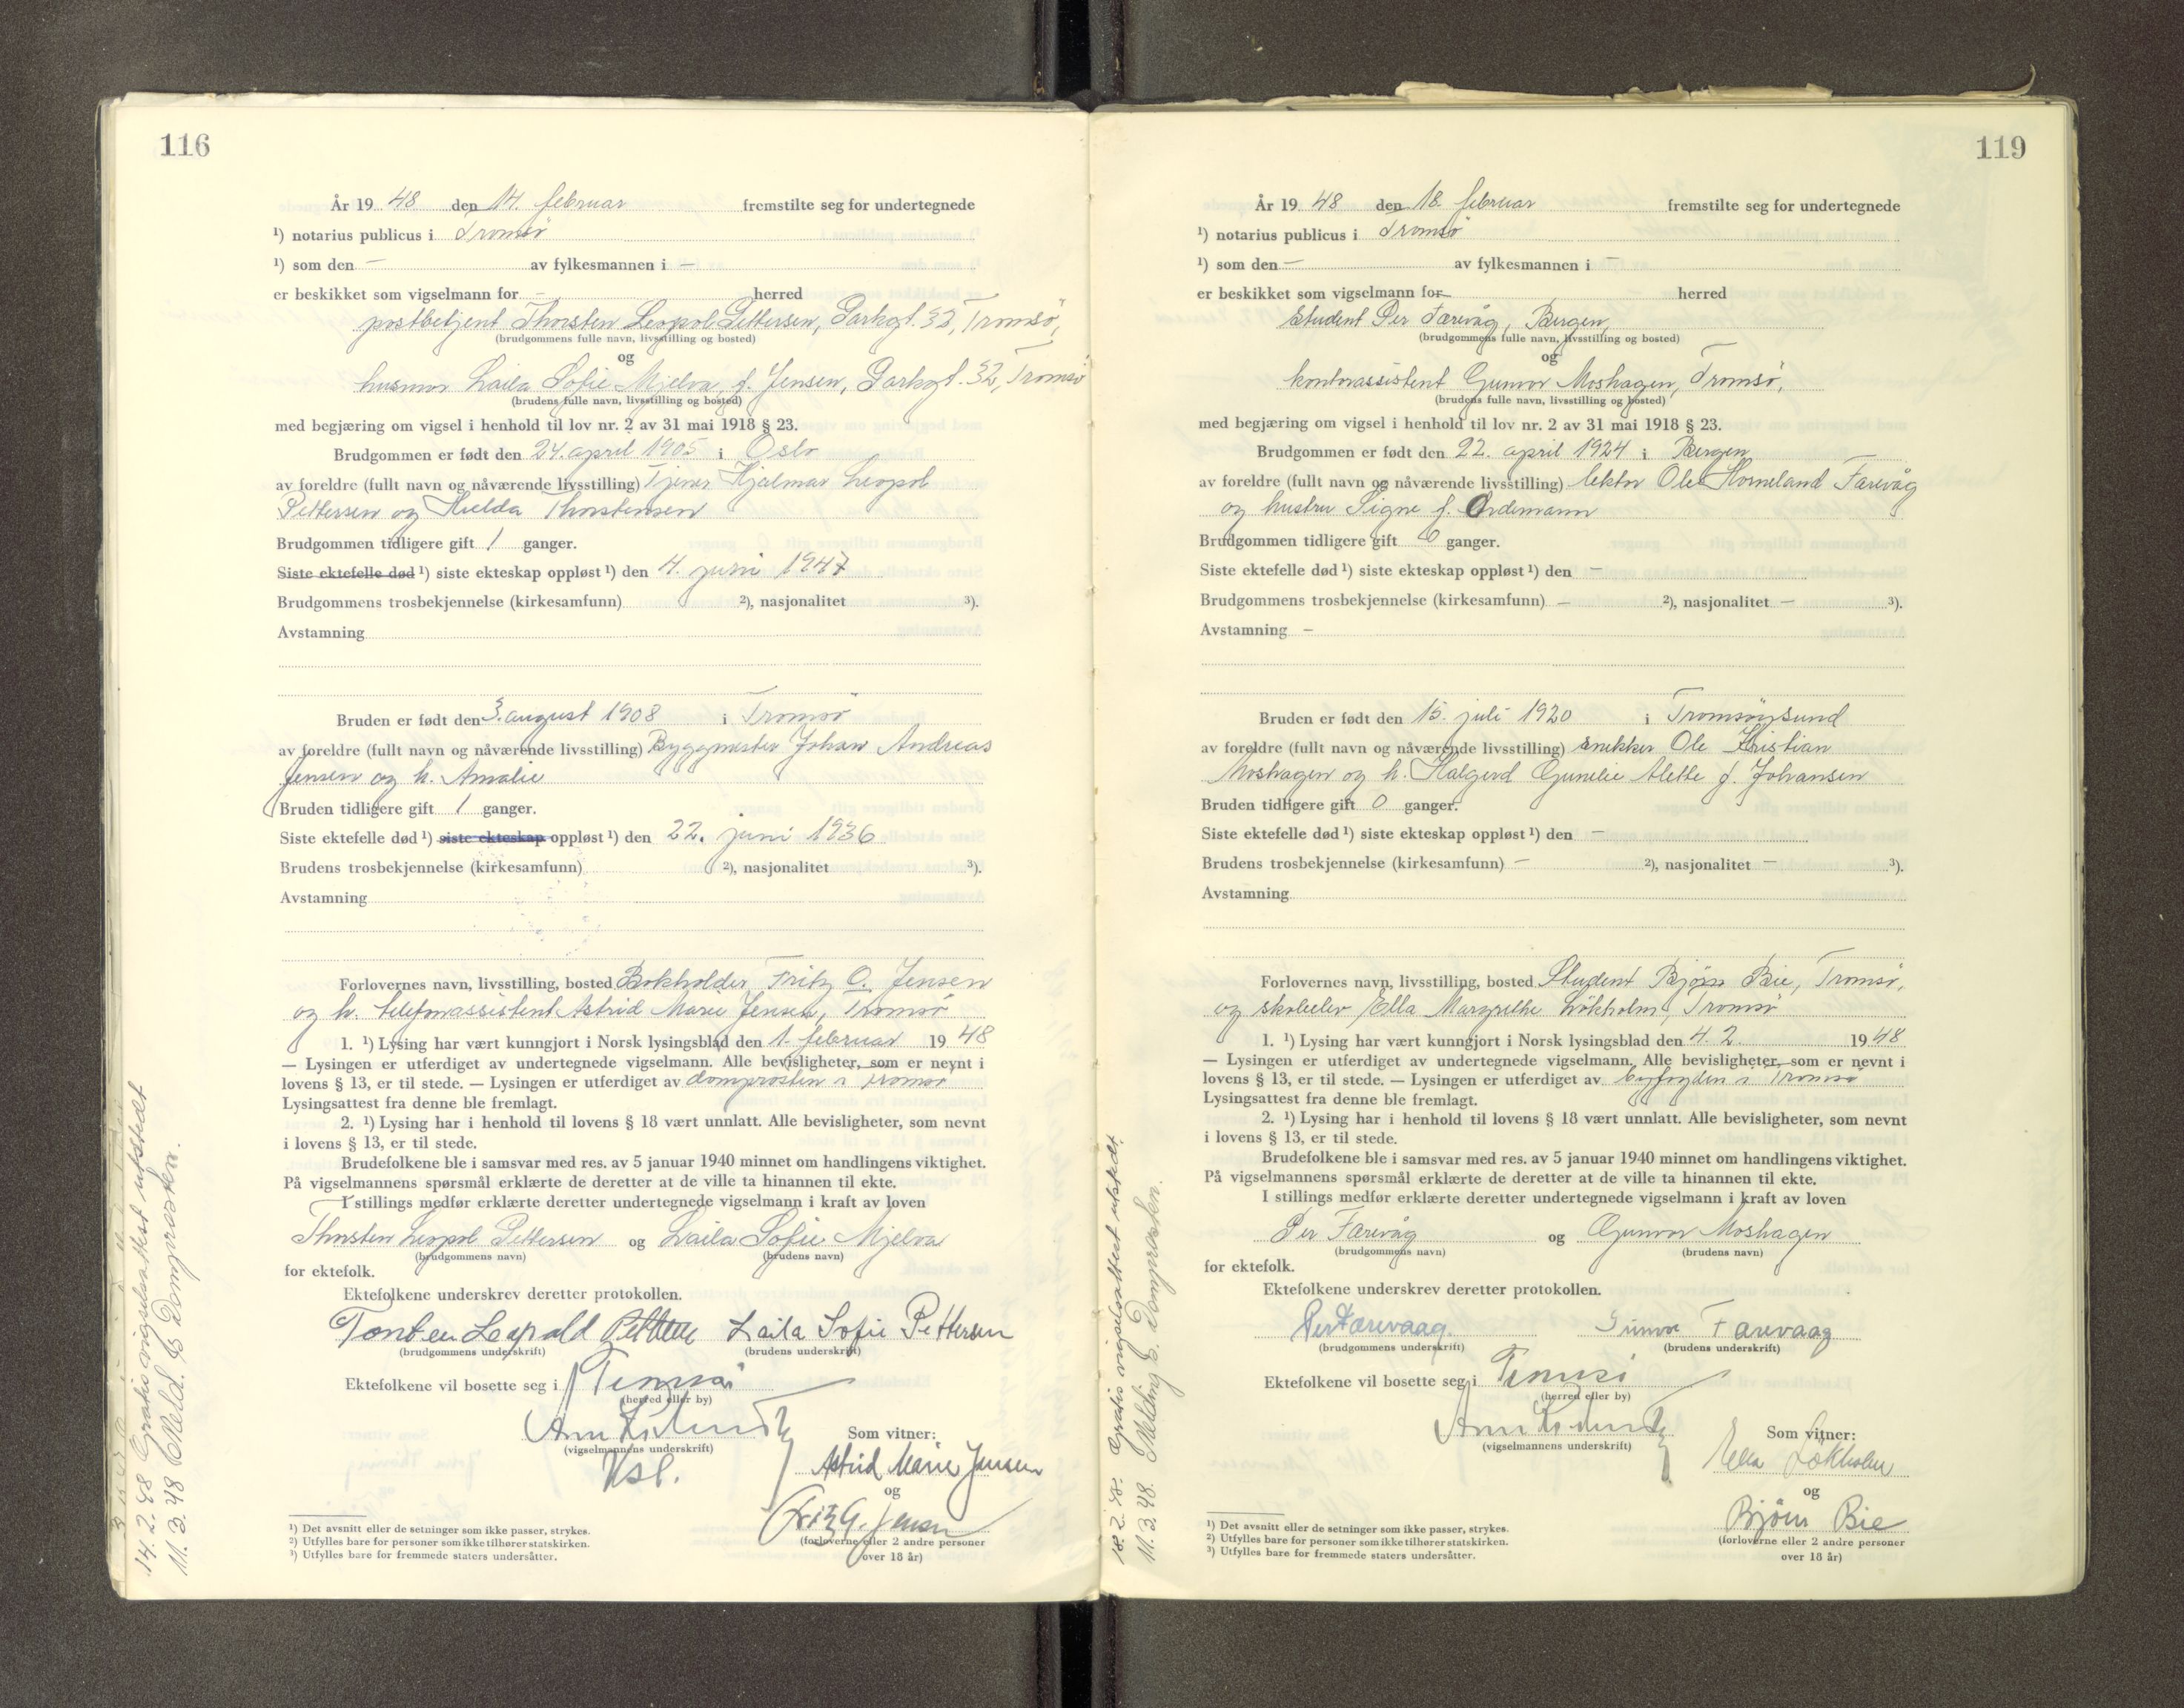 116
År 19 48 den 14. februar fremstilte seg for undertegnede
¹) notarius publicus i Tromsö
¹) som den — av fylkesmannen i —
er beskikket som vigselmann for — herred
postbetjent Thorsten Leopol Pettersen, Parkgt. 32, Tromsö,
(brudgommens fulle navn, livsstilling og bosted)
og
husmor Laila Sofie Mjelva f. Jensen, Parkgt. 32, Tromsö
(brudens fulle navn, livsstilling og bosted)
med begjæring om vigsel i henhold til lov nr. 2 av 31 mai 1918 § 23.
Brudgommen er født den 24. april 1905 i Oslo
av foreldre (fullt navn og nåværende livsstilling) Tjener Hjalmar Leopol
Pettersen og Hulda Thorstensen
Brudgommen tidligere gift 1 ganger.
Siste ektefelle død ¹) siste ekteskap oppløst ¹) den 4. juni 1947
Brudgommens trosbekjennelse (kirkesamfunn) ²), nasjonalitet ³).
Avstamning
Bruden er født den 3. august 1908 i Tromsö
av foreldre (fullt navn og nåværende livsstilling) Byggmester Johan Andreas
Jensen og h. Amalie
Bruden tidligere gift 1 ganger.
Siste ektefelle død ¹) siste ekteskap oppløst ¹) den 22. juni 1936
Brudens trosbekjennelse (kirkesamfunn) ²), nasjonalitet ³).
Avstamning
Forlovernes navn, livsstilling, bosted Bokholder Fritz O. Jensen
og h. telefonassistent Astrid Marie Jensen, Tromsö
1. ¹) Lysing har vært kunngjort i Norsk lysingsblad den 1. februar 19 48
— Lysingen er utferdiget av undertegnede vigselmann. Alle bevisligheter, som er nevnt i
lovens § 13, er til stede. — Lysingen er utferdiget av domprosten i Tromsö
Lysingsattest fra denne ble fremlagt.
2. ¹) Lysing har i henhold til lovens § 18 vært unnlatt. Alle bevisligheter, som nevnt
i lovens § 13, er til stede.
Brudefolkene ble i samsvar med res. av 5 januar 1940 minnet om handlingens viktighet.
På vigselmannens spørsmål erklærte de deretter at de ville ta hinannen til ekte.
I stillings medfør erklærte deretter undertegnede vigselmann i kraft av loven
Thorsten Leopol Pettersen og Laila Sofie Mjelva
(brudgommens navn) (brudens navn)
for ektefolk.
Ektefolkene underskrev deretter protokollen.
Leopold Laila Sofie Pettersen
(brudgommens underskrift) (brudens underskrift)
Ektefolkene vil bosette seg i Tromsö
(herred eller by)
(vigselmannens underskrift)
Som vitner:
Astrid Marie Jensen
og
Jensen
(forloverne eller 2 andre personer
over 18 år)
¹) Det avsnitt eller de setninger som ikke passer, strykes.
²) Utfylles bare for personer som ikke tilhører statskirken.
³) Utfylles bare for fremmede staters undersåtter.
14. 2. 48 Gratis vigselsattest utstedt
11. 3. 48 Meld. t. Domprosten.
119
År 19 48 den 18. februar fremstilte seg for undertegnede
¹) notarius publicus i Tromsö
¹) som den — av fylkesmannen i —
er beskikket som vigselmann for — herred
student Per Farevåg, Bergen,
(brudgommens fulle navn, livsstilling og bosted)
og
kontorassistent Gunvor Moshagen, Tromsö,
(brudens fulle navn, livsstilling og bosted)
med begjæring om vigsel i henhold til lov nr. 2 av 31 mai 1918 § 23.
Brudgommen er født den 22. april 1924 i Bergen
av foreldre (fullt navn og nåværende livsstilling) lektor Ole Horneland Farevåg
og hustru Signe f. Ordemann
Brudgommen tidligere gift 0 ganger.
Siste ektefelle død ¹) siste ekteskap oppløst ¹) den —
Brudgommens trosbekjennelse (kirkesamfunn) — ²), nasjonalitet — ³).
Avstamning —
Bruden er født den 15. juli 1920 i Tromsöysund
av foreldre (fullt navn og nåværende livsstilling) snekker Ole Kristian
Moshagen og h. Halgerd Gunelie Alette f. Johansen
Bruden tidligere gift 0 ganger.
Siste ektefelle død ¹) siste ekteskap oppløst ¹) den —
Brudens trosbekjennelse (kirkesamfunn) — ²), nasjonalitet — ³).
Avstamning
Forlovernes navn, livsstilling, bosted Student Bjørn Bie, Tromsö,
og skoleelev Ella Margrethe Lökholm, Tromsö
1. ¹) Lysing har vært kunngjort i Norsk lysingsblad den 4. 2. 19 48
— Lysingen er utferdiget av undertegnede vigselmann. Alle bevisligheter, som er nevnt i
lovens § 13, er til stede. — Lysingen er utferdiget av byfogden i Tromsö
Lysingsattest fra denne ble fremlagt.
2. ¹) Lysing har i henhold til lovens § 18 vært unnlatt. Alle bevisligheter, som nevnt
i lovens § 13, er til stede.
Brudefolkene ble i samsvar med res. av 5 januar 1940 minnet om handlingens viktighet.
På vigselmannens spørsmål erklærte de deretter at de ville ta hinannen til ekte.
I stillings medfør erklærte deretter undertegnede vigselmann i kraft av loven
Per Farevåg og Gunvor Moshagen
(brudgommens navn) (brudens navn)
for ektefolk.
Ektefolkene underskrev deretter protokollen.
Per Farevaag. Gunvor Farevaag
(brudgommens underskrift) (brudens underskrift)
Ektefolkene vil bosette seg i Tromsö
(herred eller by)
(vigselmannens underskrift)
Som vitner:
Ella Lökholm
og
Bjørn Bie
(forloverne eller 2 andre personer
over 18 år)
¹) Det avsnitt eller de setninger som ikke passer, strykes.
²) Utfylles bare for personer som ikke tilhører statskirken.
³) Utfylles bare for fremmede staters undersåtter.
18. 2. 48. Gratis vigselsattest utstedt.
11. 3. 48. Melding t. Domprosten.